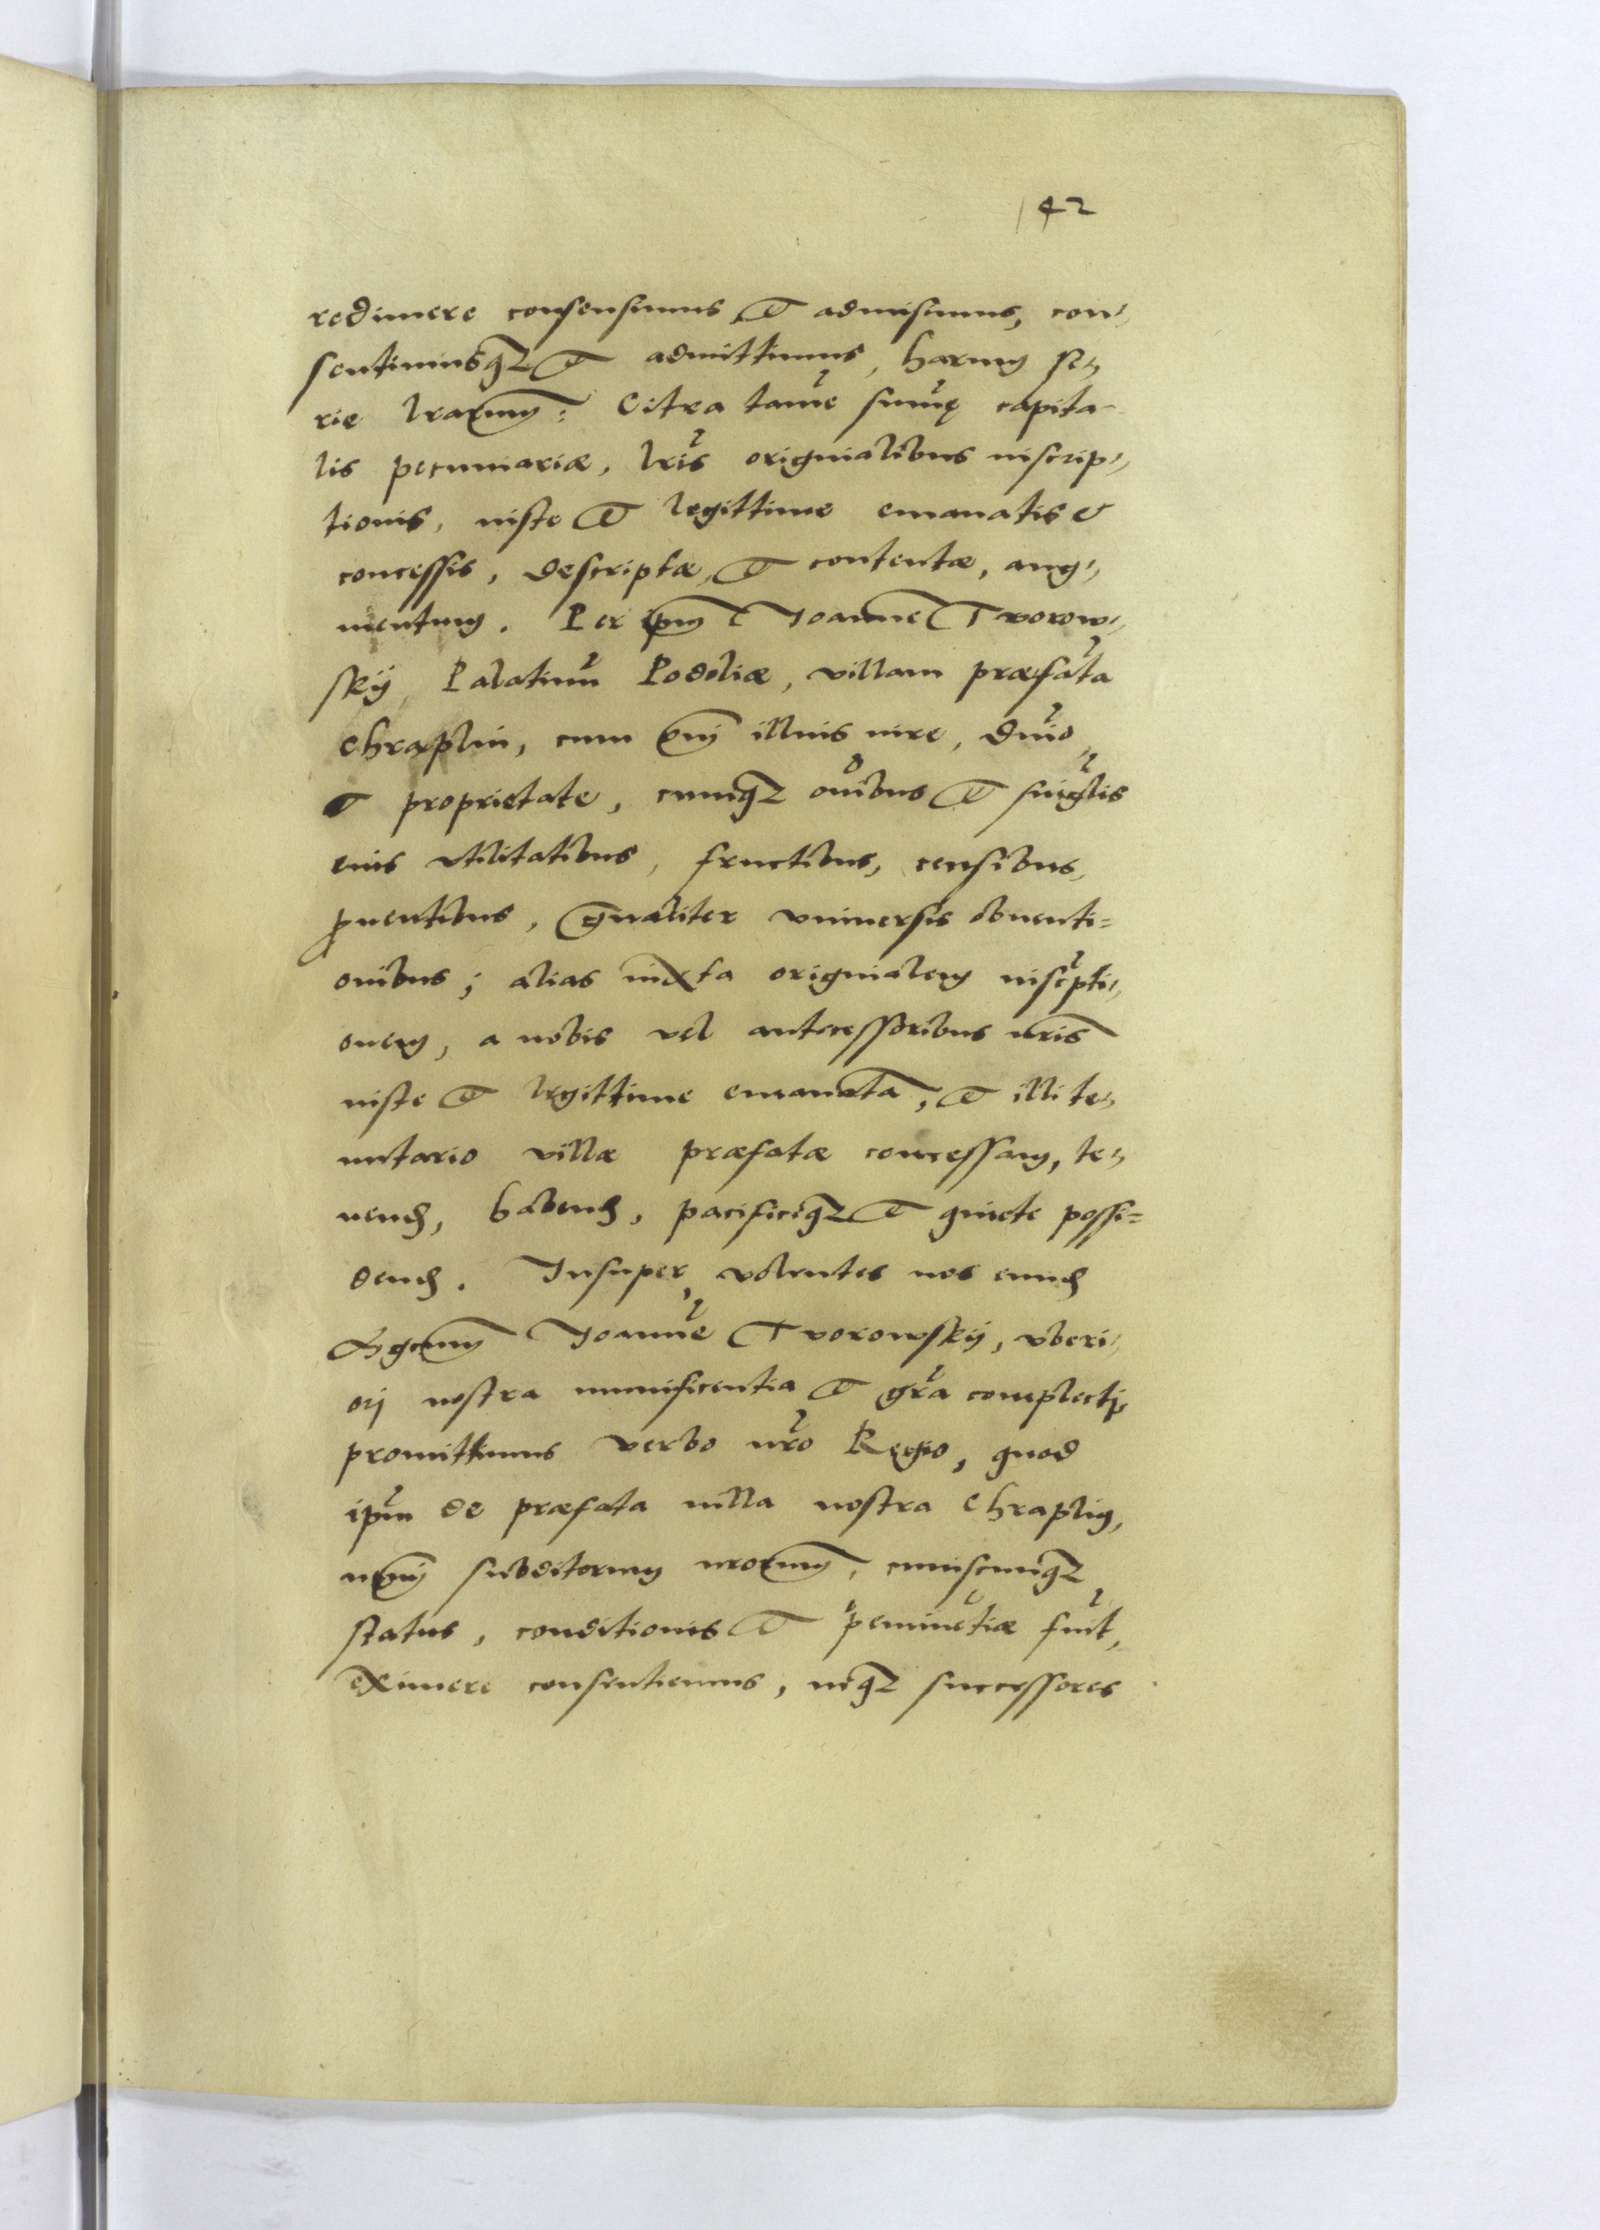 142
redimere consensimus et admisimus, con⸗
sentimusq₃ et admittimus, harum se⸗
rie lrarum: Citra tame summę capita
lis pecuniariæ, lris originalibus inscrip⸗
tionis, iuste et legittime emanatis et
concessis, descriptæ, et contentæ, aug⸗
mentum. Per ipm Joanne Tvorow⸗
skÿ Palatinu Podoliæ, villam præfata
Chraplin, cum omni illius iure, dnio,
et proprietate, cumq₃ oibus et singlis
eius vtilitatibus, fructibus, censibus,
puentibus, gnaliter vniuersis obuenti⸗
onibus; alias iuxta originalem inscpti⸗
onem, a nobis vel antecessoribus nris
iuste et legittime emanata, et illi te⸗
nutario villæ præfatæ concessam, te⸗
nend, habend, pacificeq₃ et quiete possi⸗
dend. Insuper, volentes nos eund
Mgcum Joanne Tvorowskÿ, vberi⸗
orj nostra munificentia et gra complecti,
promittimus verbo nro Regio, quod
ipm de præfata uilla nostra Chraplin,
nemini subditorum nrorum, cuiuscunq₃
status, conditionis et peminetiæ fuit,
eximere consentiemus, neq₃ successores